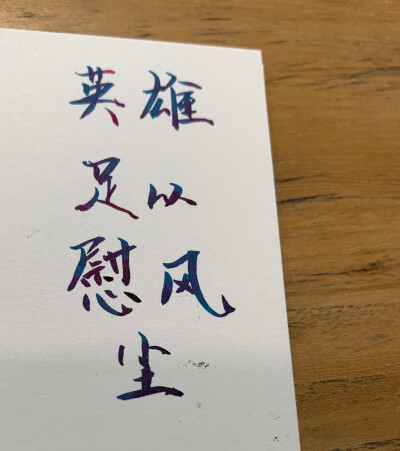 英雄
足以
慰风
尘